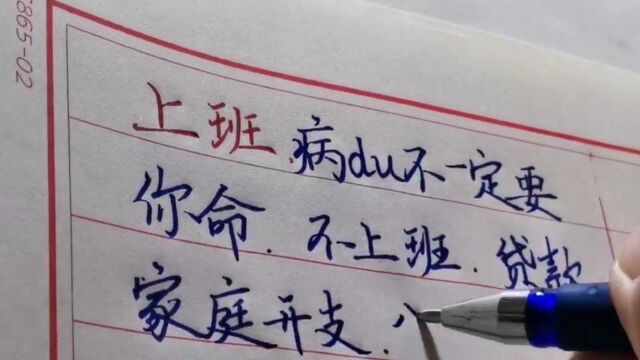 865-02
上班.病du不一定要
你命.不上班.贷款
家庭开支.